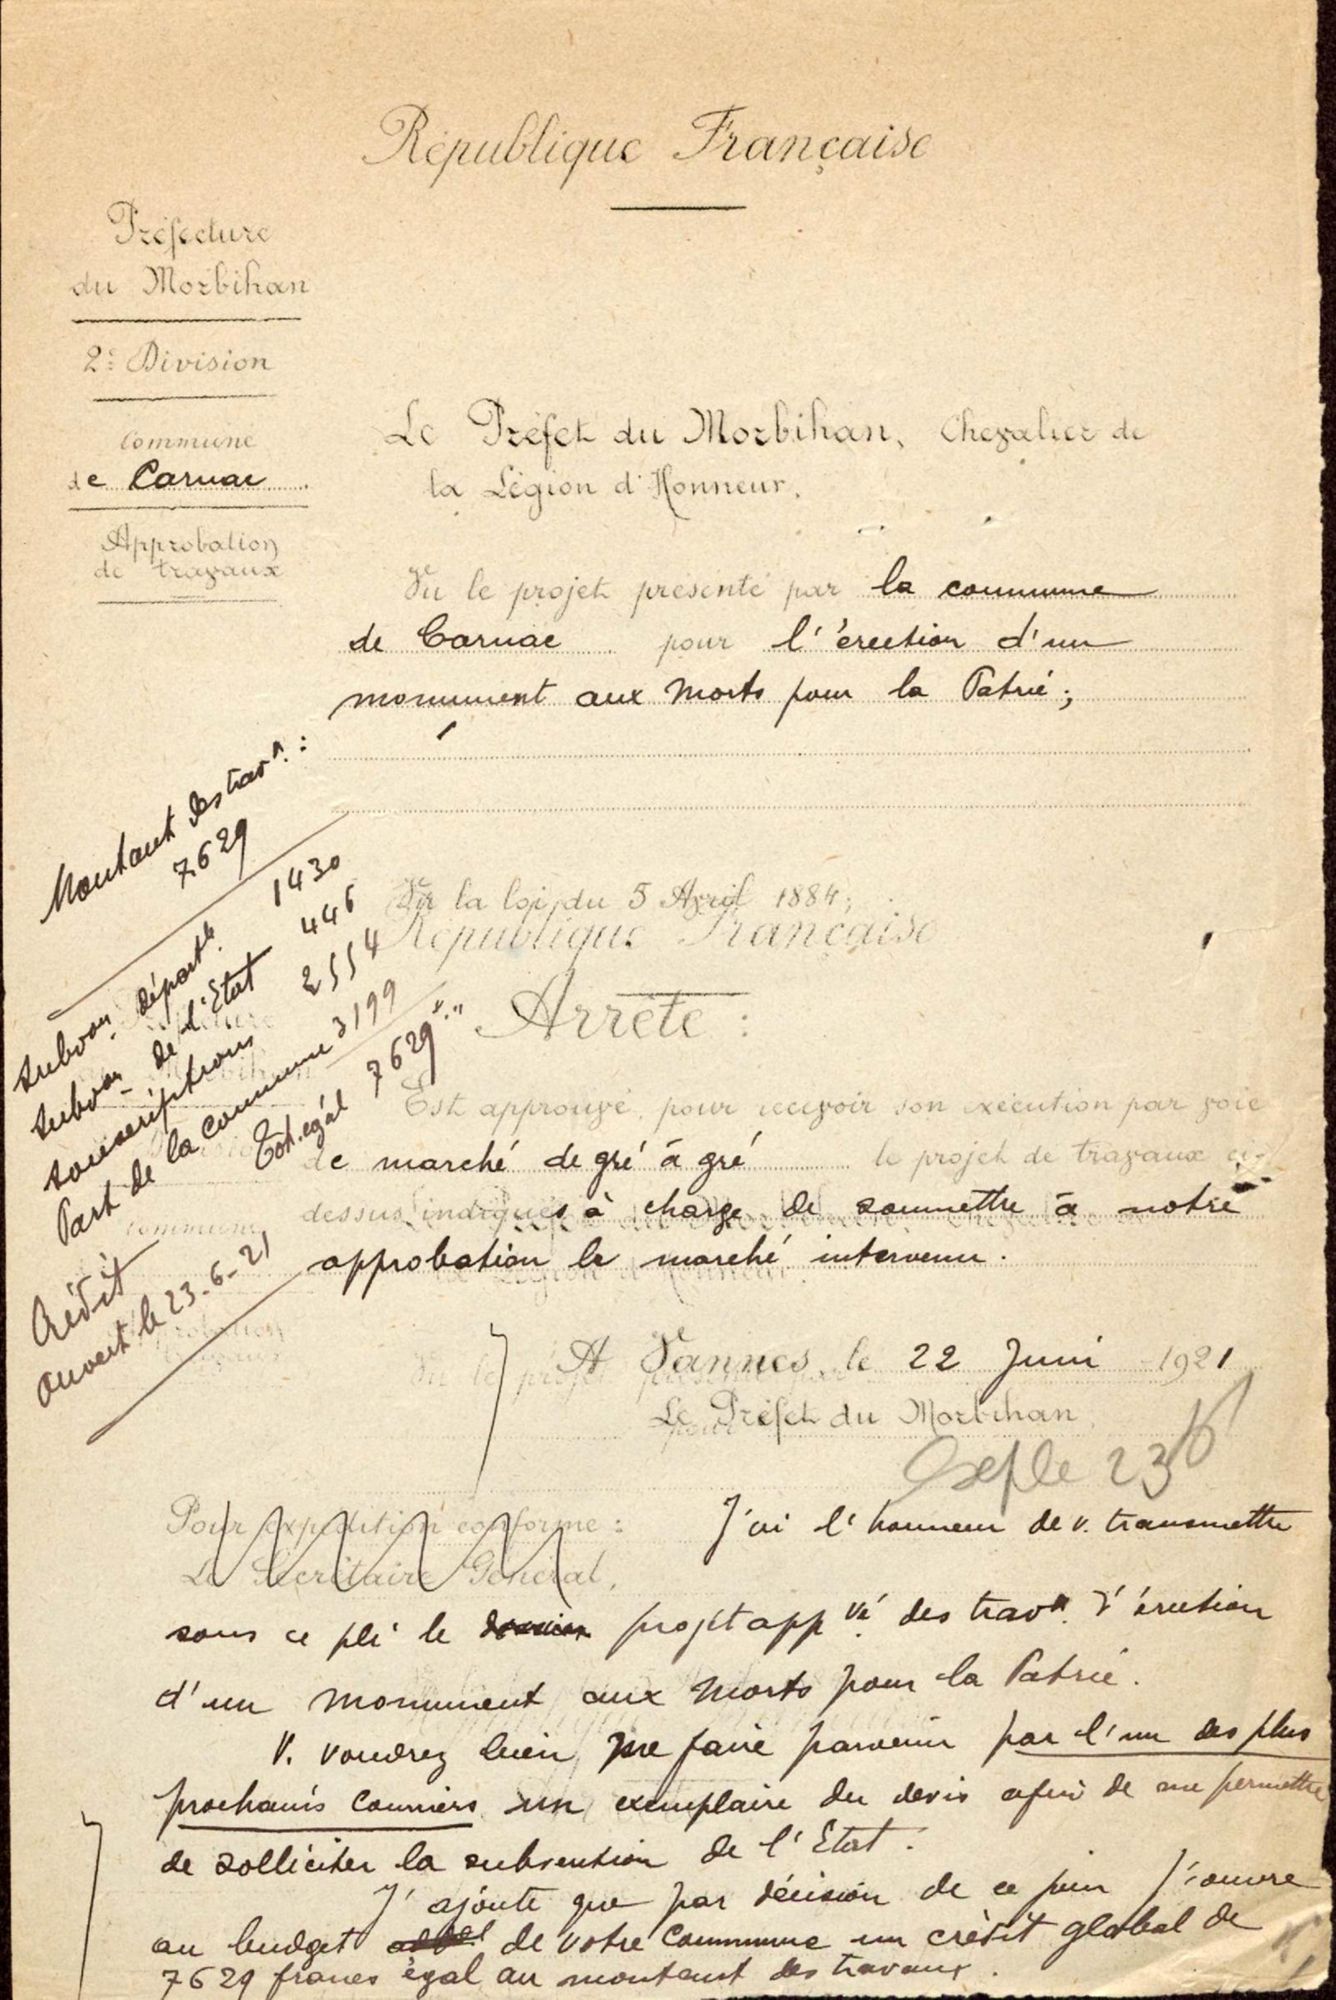 République Française
Préfecture
du Morbihan
2e Division
Commune
de Carnac
Approbation
de travaux
Le Préfet du Morbihan, Chevalier de
la Légion d'Honneur,
Vu le projet présenté par la commune
de Carnac pour l'érection d'un
monument aux Morts pour la Patrie;
Montant des travx. :
7629
Subvon. départle. 1430
Subvon de l'Etat 446
Souscriptions 2554
Part de la commune 3199
Tot. égal 7629
Crédit
ouvert le 23-6-21
Vu la loi du 5 Avril 1884;
République Française
Arrête :
Est approuvé, pour recevoir son exécution par voie
de marché de gré à gré le projet de travaux ci-
dessus indiqués à charge de soumettre à notre
approbation le marché intervenu.
A Vannes, le 22 Juin 1921
Le Préfet du Morbihan,
23/6
Pour expédition conforme :
Le Secrétaire Général,
J'ai l'honneur de v. transmettre
sous ce pli le projet appvé. des travx. d'érection
d'un monument aux Morts pour la Patrie.
V. voudrez bien me faire parvenir par l'un des plus
prochains courriers un exemplaire du devis afin de me permettre
de solliciter la subvention de l'Etat.
J'ajoute que par décision de ce jour j'ouvre
au budget de votre Commune un crédit global de
7629 francs égal au montant des travaux.